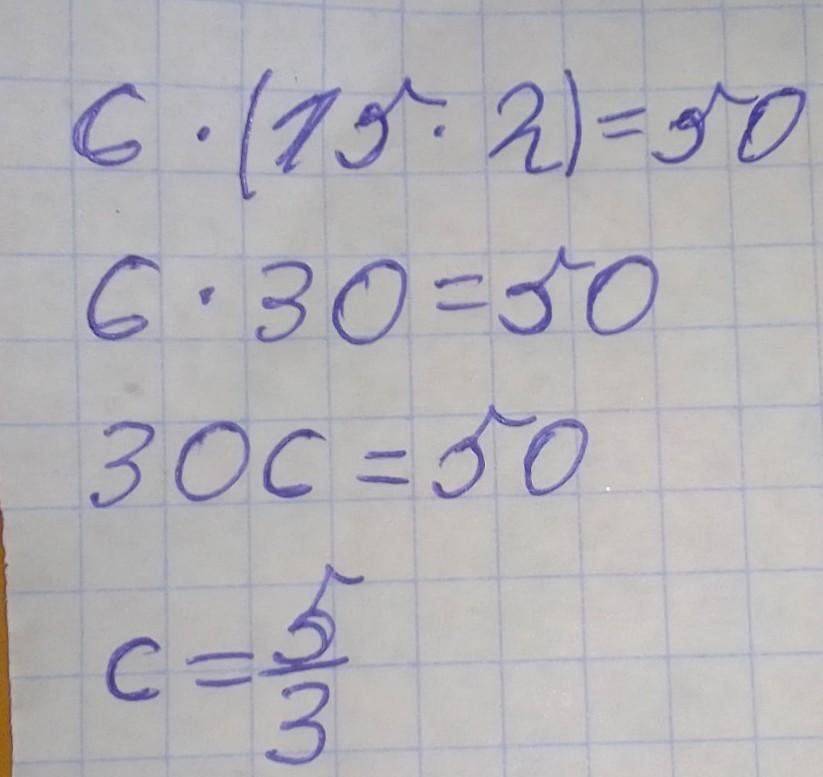 6 · (15 · 2) = 50
6 · 30 = 50
30c = 50
c = 5/3